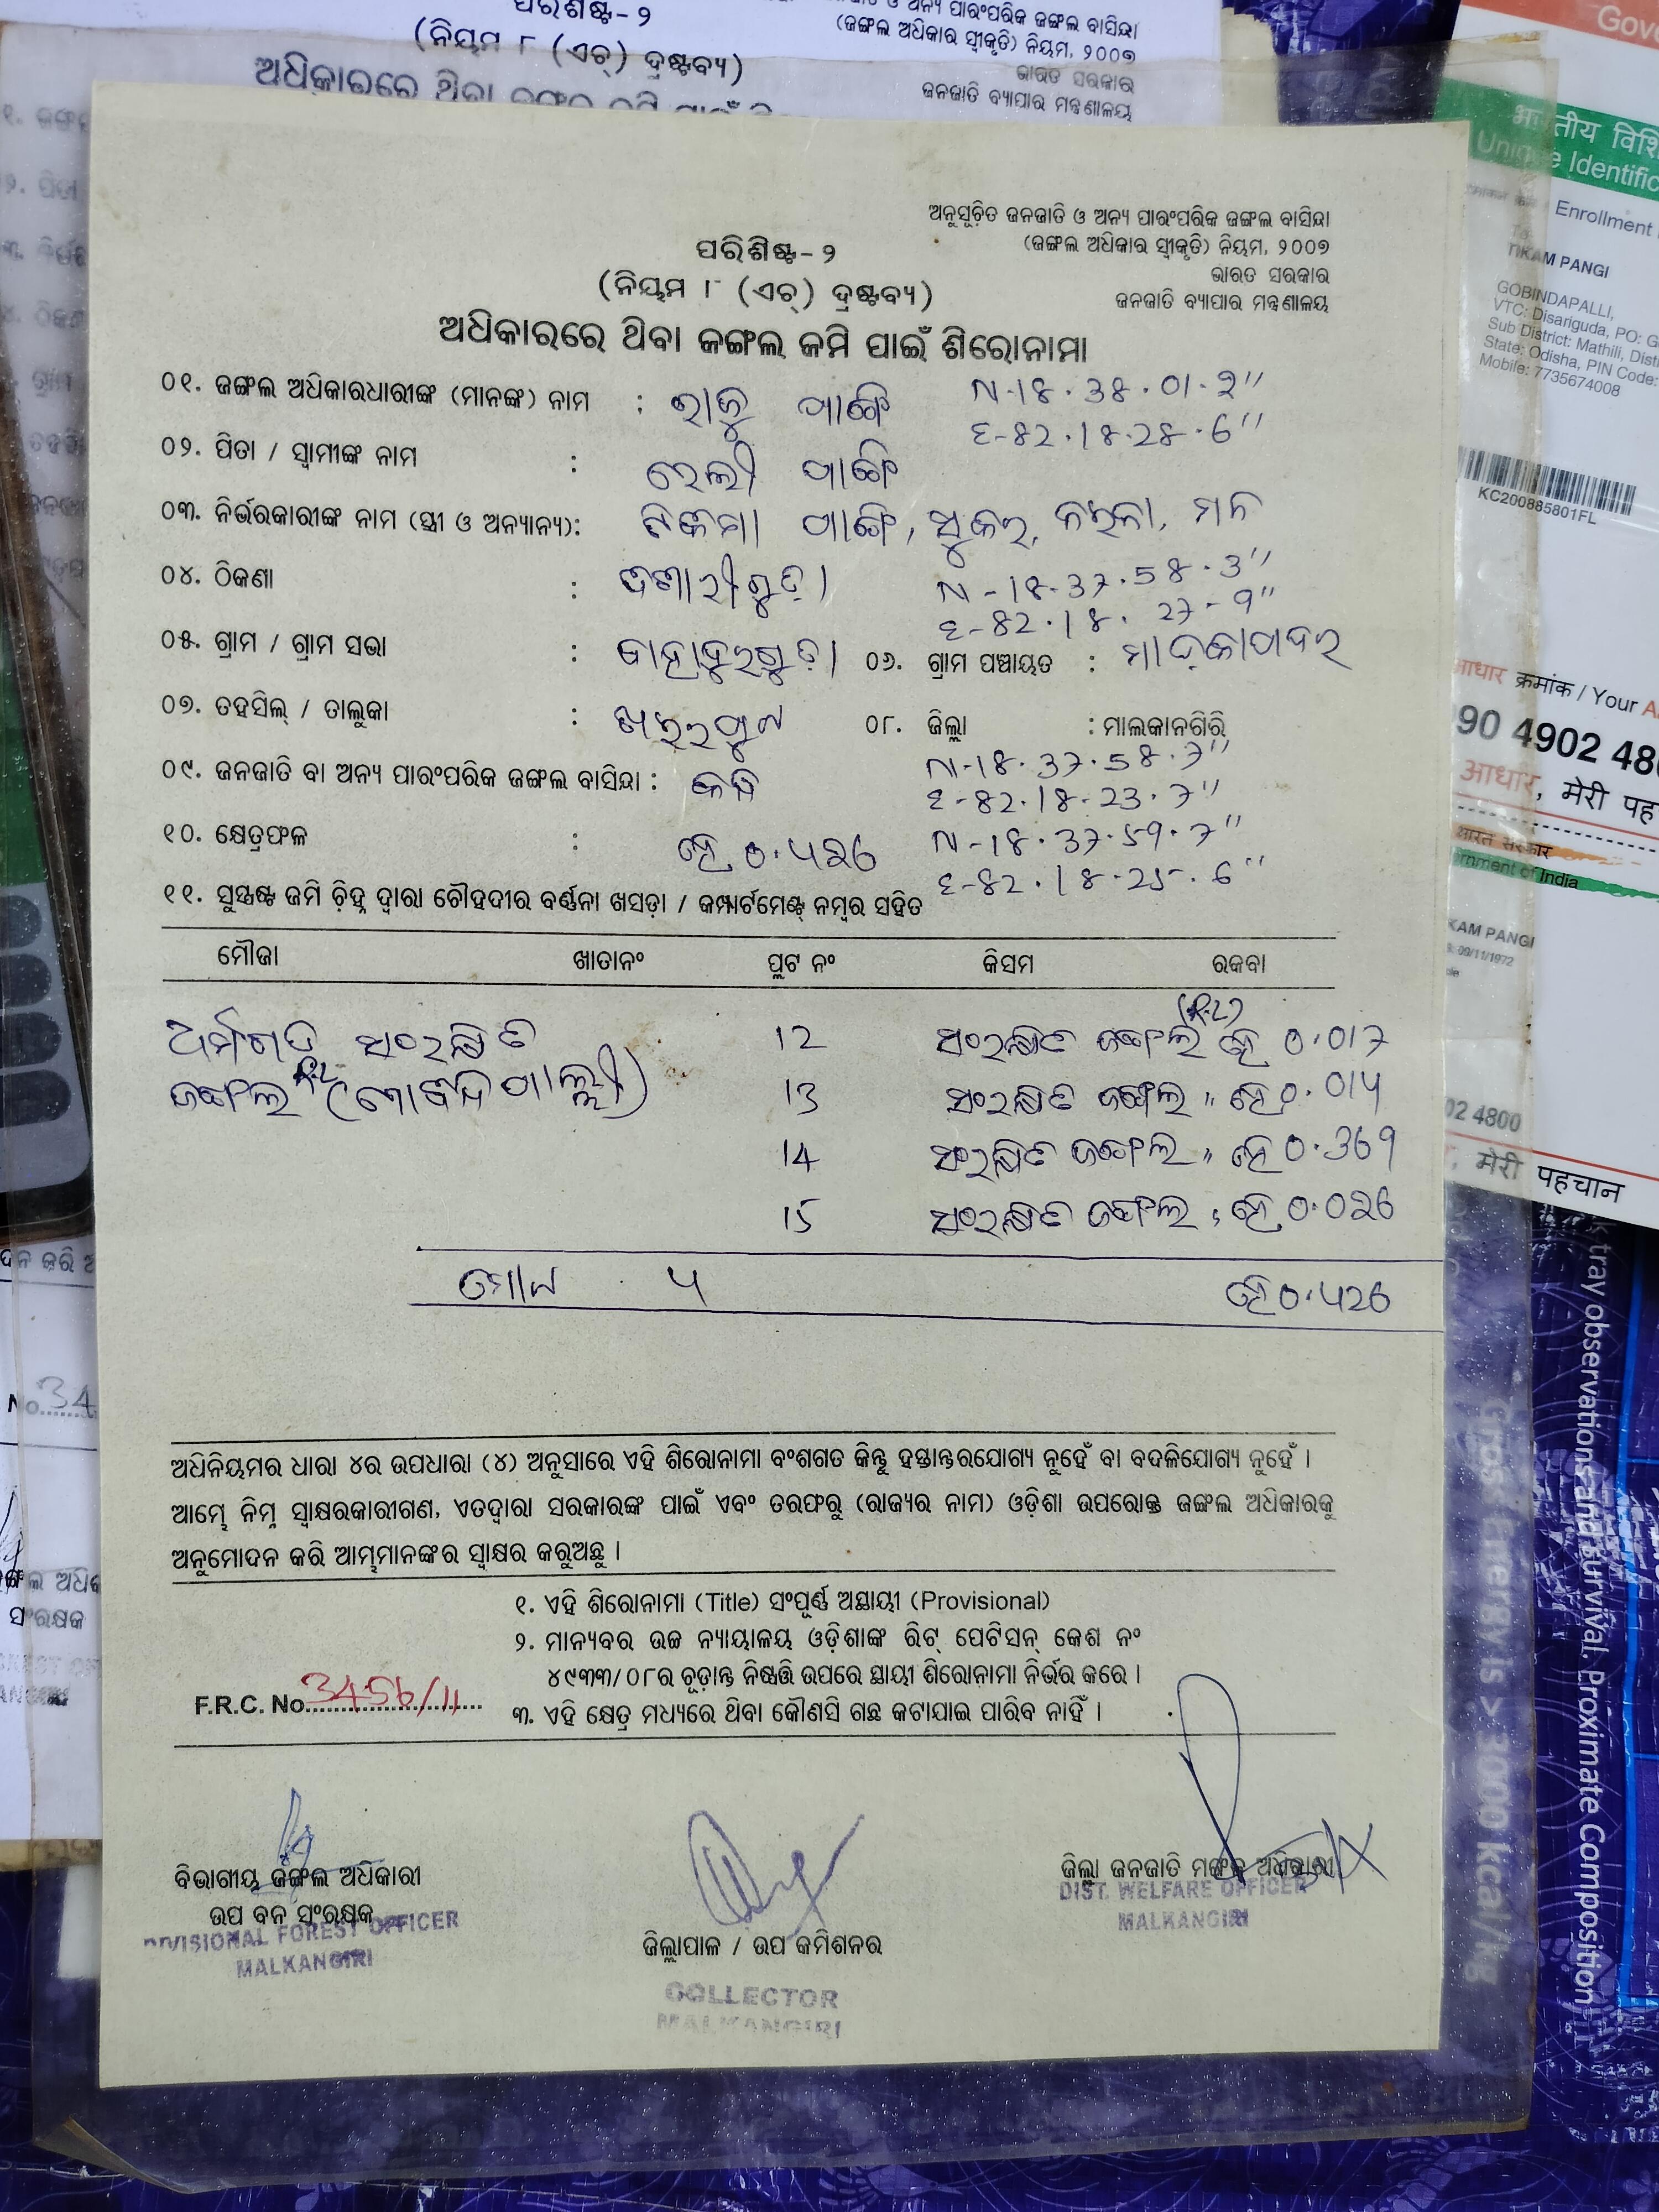 ପରିଶିଷ୍ଟ-୨
(ନିୟମ ୮ (ଏଚ୍) ଦ୍ରଷ୍ଟବ୍ୟ)
ଅଧିକାରରେ ଥିବା
ଓ ଅନ୍ୟ ପାରଂପରିକ ଜଙ୍ଗଲ ବାସିନ୍ଦା
(ଜଙ୍ଗଲ ଅଧିକାର ସ୍ୱୀକୃତି) ନିୟମ, ୨୦୦୭
ଭାରତ ସରକାର
ଜନଜାତି ବ୍ୟାପାର ମନ୍ତ୍ରଣାଳୟ
ଅନୁସୂଚିତ ଜନଜାତି ଓ ଅନ୍ୟ ପାରଂପରିକ ଜଙ୍ଗଲ ବାସିନ୍ଦା
(ଜଙ୍ଗଲ ଅଧିକାର ସ୍ୱୀକୃତି) ନିୟମ, ୨୦୦୭
ଭାରତ ସରକାର
ଜନଜାତି ବ୍ୟାପାର ମନ୍ତ୍ରଣାଳୟ
ପରିଶିଷ୍ଟ-୨
(ନିୟମ ୮ (ଏଚ୍) ଦ୍ରଷ୍ଟବ୍ୟ)
ଅଧିକାରରେ ଥିବା ଜଙ୍ଗଲ ଜମି ପାଇଁ ଶିରୋନାମା
୦୧. ଜଙ୍ଗଲ ଅଧିକାରଧାରୀଙ୍କ (ମାନଙ୍କ) ନାମ : ରାଜୁ ପାଙ୍ଗି N-18.38.01.2"
E-82.18.28.6"
୦୨. ପିତା / ସ୍ୱାମୀଙ୍କ ନାମ : ରେଲୀ ପାଙ୍ଗି
୦୩. ନିର୍ଭରକାରୀଙ୍କ ନାମ (ସ୍ତ୍ରୀ ଓ ଅନ୍ୟାନ୍ୟ): ଟିକମା ପାଙ୍ଗି,
୦୪. ଠିକଣା : N-18.37.58.3"
E-82.18.27.9"
୦୫. ଗ୍ରାମ / ଗ୍ରାମ ସଭା : ବାହାଦୁରଗୁଡ଼ା ୦୬. ଗ୍ରାମ ପଞ୍ଚାୟତ : ମାଦ୍କାପାଦର
୦୭. ତହସିଲ୍ / ତାଲୁକା : ଖଇରପୁଟ ୦୮. ଜିଲ୍ଲା : ମାଲକାନଗିରି
N-18.37.58.7"
୦୯. ଜନଜାତି ବା ଅନ୍ୟ ପାରଂପରିକ ଜଙ୍ଗଲ ବାସିନ୍ଦା : E-82.18.23.7"
୧୦. କ୍ଷେତ୍ରଫଳ : ହେ ୦.୪୨୬ N-18.37.59.7"
E-82.18.25.6"
୧୧. ସୁସ୍ପଷ୍ଟ ଜମି ଚିହ୍ନ ଦ୍ୱାରା ଚୌହଦୀର ବର୍ଣ୍ଣନା ଖସଡ଼ା / କମ୍ପାର୍ଟମେଣ୍ଟ୍ ନମ୍ବର ସହିତ
ମୌଜା ଖାତାନଂ ପ୍ଲଟ ନଂ କିସମ ରକବା
ଧର୍ମଗଡ ସଂରକ୍ଷିତ 12 ସଂରକ୍ଷିତ ଜଙ୍ଗଲ ହେ 0.017
ଜଙ୍ଗଲ (ଗୋବିନ୍ଦପାଲ୍ଲୀ) 13 ସଂରକ୍ଷିତ ଜଙ୍ଗଲ " ହେ ୦.01୪
14 ସଂରକ୍ଷିତ ଜଙ୍ଗଲ " ହେ 0.369
15 ସଂରକ୍ଷିତ ଜଙ୍ଗଲ " ହେ 0.0୨6
ମୋଟ ୪ ହେ 0.୪26
ଅଧିନିୟମର ଧାରା ୪ର ଉପଧାରା (୪) ଅନୁସାରେ ଏହି ଶିରୋନାମା ବଂଶଗତ କିନ୍ତୁ ହସ୍ତାନ୍ତରଯୋଗ୍ୟ ନୁହେଁ ବା ବଦଳିଯୋଗ୍ୟ ନୁହେଁ ।
ଆମ୍ଭେ ନିମ୍ନ ସ୍ୱାକ୍ଷରକାରୀଗଣ, ଏତଦ୍ୱାରା ସରକାରଙ୍କ ପାଇଁ ଏବଂ ତରଫରୁ (ରାଜ୍ୟର ନାମ) ଓଡ଼ିଶା ଉପରୋକ୍ତ ଜଙ୍ଗଲ ଅଧିକାରକୁ
ଅନୁମୋଦନ କରି ଆମ୍ଭମାନଙ୍କର ସ୍ୱାକ୍ଷର କରୁଅଛୁ ।
୧. ଏହି ଶିରୋନାମା (Title) ସଂପୂର୍ଣ୍ଣ ଅସ୍ଥାୟୀ (Provisional)
୨. ମାନ୍ୟବର ଉଚ୍ଚ ନ୍ୟାୟାଳୟ ଓଡ଼ିଶାଙ୍କ ରିଟ୍ ପେଟିସନ୍ କେଶ ନଂ
୪୯୩୩/୦୮ର ଚୂଡ଼ାନ୍ତ ନିଷ୍ପତ୍ତି ଉପରେ ସ୍ଥାୟୀ ଶିରୋନାମା ନିର୍ଭର କରେ ।
F.R.C. No. 3456/11
୩. ଏହି କ୍ଷେତ୍ର ମଧ୍ୟରେ ଥିବା କୌଣସି ଗଛ କଟାଯାଇ ପାରିବ ନାହିଁ ।
ବିଭାଗୀୟ ଜଙ୍ଗଲ ଅଧିକାରୀ
ଉପ ବନ ସଂରକ୍ଷକ
DIVISIONAL FOREST OFFICER
MALKANGIRI
ଜିଲ୍ଲାପାଳ / ଉପ କମିଶନର
COLLECTOR
MALKANGIRI
ଜିଲ୍ଲା ଜନଜାତି ମଙ୍ଗଳ ଅଧିକାରୀ
DIST. WELFARE OFFICER
MALKANGIRI
Unique Identific
Enrollment
TIKAM PANGI
GOBINDAPALLI,
VTC: Disariguda, PO: G
Sub District: Mathili, Dist
State: Odisha, PIN Code:
Mobile: 7735674008
KC200885801FL
आधार क्रमांक / Your A
90 4902 48
आधार, मेरी पह
भारत सरकार
ernment of India
KAM PANGI
09/11/1972
02 4800
मेरी पहचान
No. 34
tray observations and survival. Proximate Composition
Energy is > 3000 kcal/kg